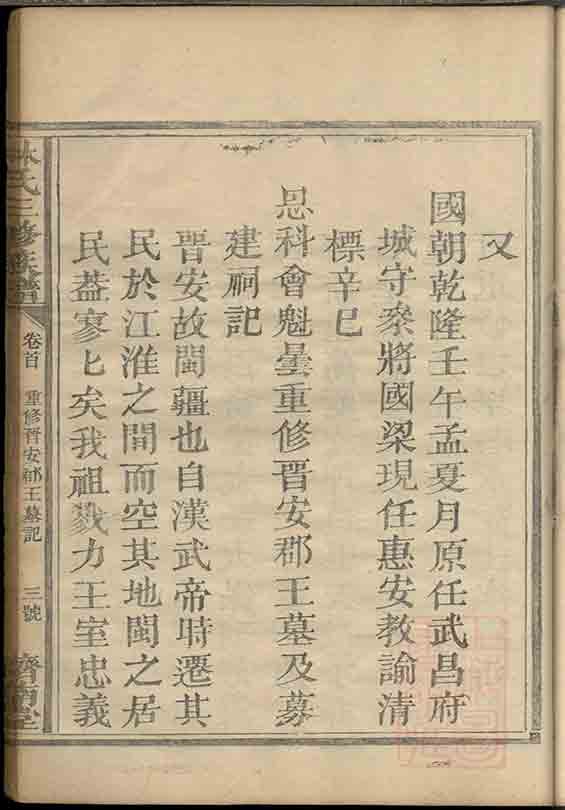 又
國朝乾隆壬午孟夏月原任武昌府
城守叅將國梁現任惠安教諭清
標辛巳
恩科會魁曇重修晋安郡王墓及募
建祠記
晋安故閩疆也自漢武帝時遷其
民於江淮之間而空其地閩之居
民葢寥匕矣我祖戮力王室忠義
林氏三修族譜
卷首
重修晋安郡王墓記
三號
濟南堂